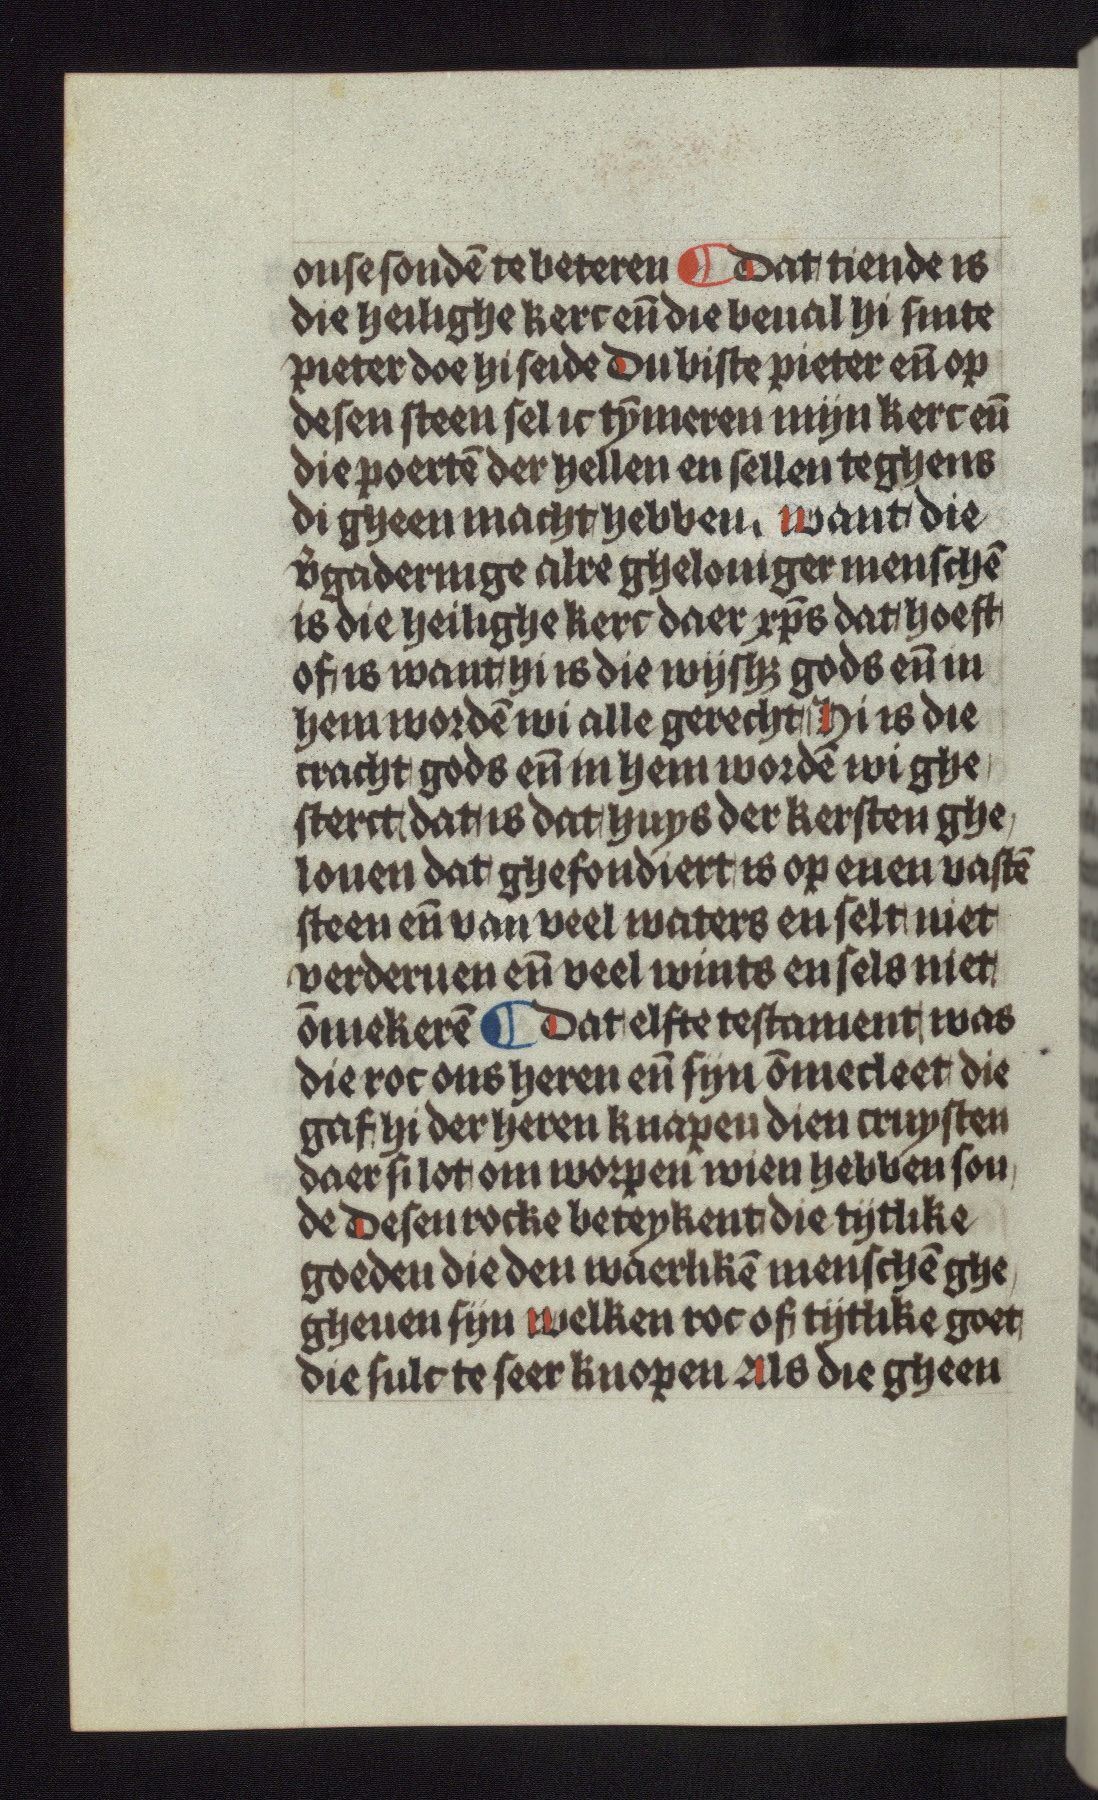 onse sondē te beteren ¶ Dat tiende is
die heilighe kerc eñ die beual hi sinte
pieter doe hi seide Du biste pieter eñ op
desen steen sel ic tȳmeren mijn kerc eñ
die poertē der hellen en sellen teghens
di gheen macht hebben. want die
v̄gaderinge alre ghelouiger menschē
is die heilighe kerc daer xp̄s dat hoeft
of is want hi is die wijsh̷ gods eñ in
hem wordē wi alle gerecht Hi is die
cracht gods eñ in hem wordē wi ghe
sterct dat is dat huys der kersten ghe
louen dat ghefondiert is op enen vastē
steen eñ van veel waters en selt niet
verderuen eñ veel wints en sels niet
ōmekerē ¶ Dat elfte testament was
die roc ons heren eñ sijn ōmecleet die
gaf hi der heren knapen dien cruysten
daer si lot om worpen wien hebben sou
de Desen rocke beteykent die tijtlike
goeden die den waerlikē menschē ghe
gheuen sijn welken roc of tijtlike goet
die sulc te seer knopen Als die gheen